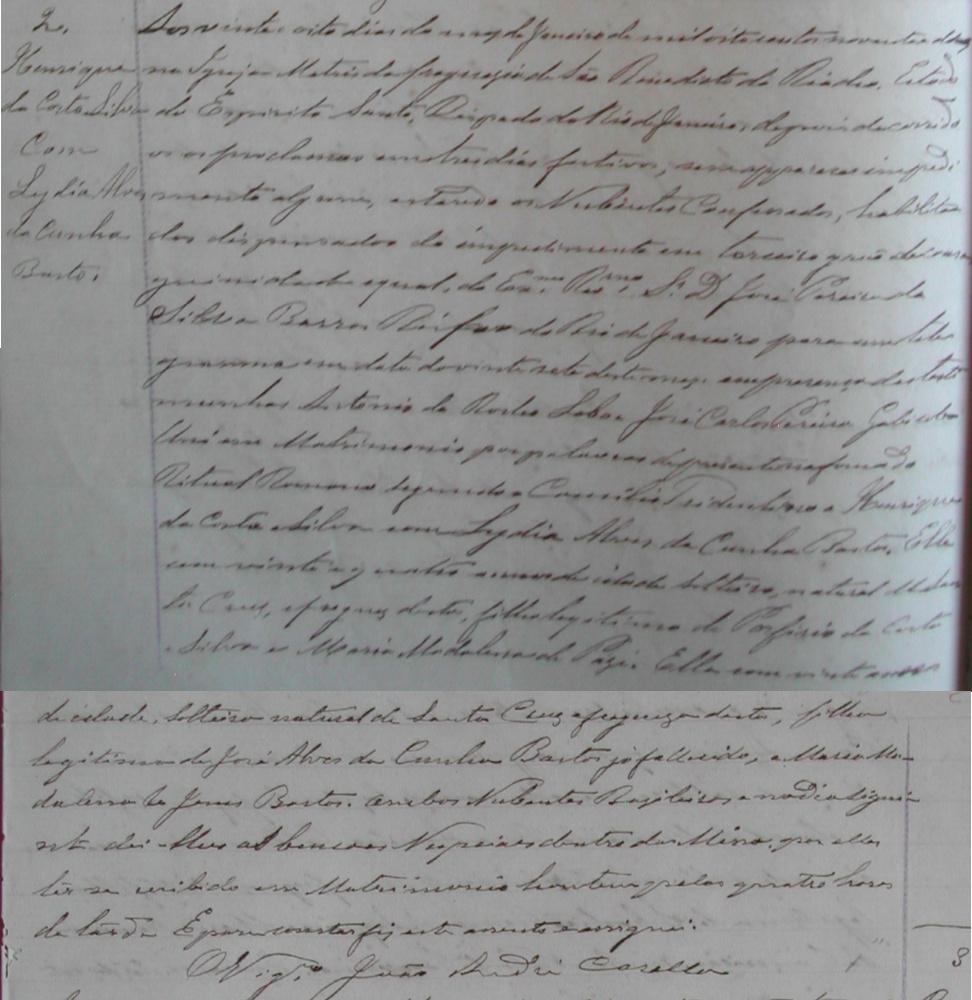 2.
Henrique
da Costa Silva
Com
Lydia Alves
da Cunha
Bastos.
Aos vinte e oito dias do mez de Janeiro de mil oitocentos noventa e dous
na Igreja Matriz da freguezia de São Benedicto do Riacho, Estado
do Espirito Santo, Bispado do Rio de Janeiro, depois de corrido
os os proclamas em tres dias festivos, sem apparecer impedi
mento algum, estando os Nubentes Confessados, habilita
dos dispensados do impedimento em terceiro gráo de consan
guinidade equal, do Exmo. Revmo. Sr. D José Pereira da
Silva Barros Bispo do Rio de Janeiro para um tele
gramma em data do vinte sete deste mez. em presença das teste
munhas Antonio da Rocha Lobo e José Carlos Pereira
Uni em Matrimonio por palavras de presente na forma do
Ritual Romano segundo o Concilio Tridentino a Henrique
da Costa e Silva com Lydia Alves da Cunha Bastos. Elle
com vinte e quatro annos de idade solteiro, natural de San
ta Cruz, e freguez desta, filho legitimo de Porfirio da Costa
e Silva e Maria Madalena de Ella com vinte annos
de idade, solteira natural de Santa Cruz e fregueza desta, filha
legitima de José Alves da Cunha Bastos já fallecido, e Maria Ma-
dalena de Jesus Bastos. ambos Nubentes Brazileiros e no dia seguin
nte dei-lhes as bencaos Nupciaes dentro da Missa, por elles
ter se recibido em Matrimonio hontem pelas quatro horas
da tarde E para constar fiz este assento e assignei.
O Vigro. João André Casella
3